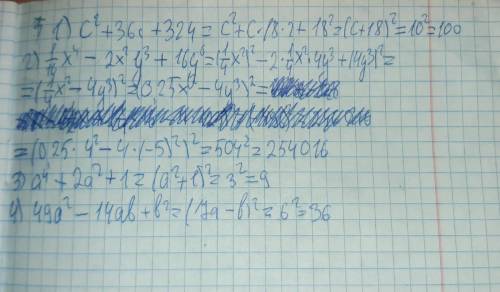 1) c² + 36c + 324 = c² + c·18·2 + 18² = (c+18)² = 10² = 100
2) 1/4 x⁴ - 2x² y³ + 16y⁶ = (1/4 x²)² - 2·1/4 x²·4y³ + (4y³)² =
= (1/4 x² - 4y³)² = (0,25x² - 4y³)² =
= (0,25·4² - 4·(-5)²)² = 504² = 254016
3) a⁴ + 2a² + 1 = (a²+1)² = 3² = 9
4) 49a² - 14ab + b² = (7a - b)² = 6² = 36